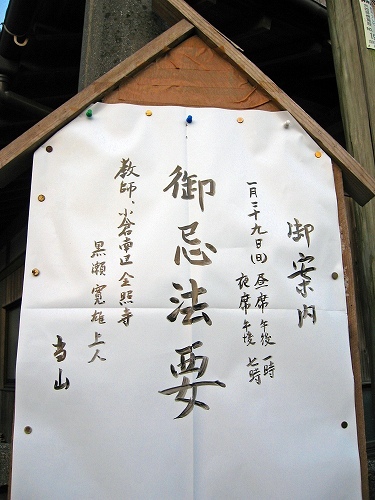 御案内
一月二十九日(日)昼席午後一時
夜席午後七時
御忌法要
教師、小倉南区全照寺
黒瀬寛雄上人
当山